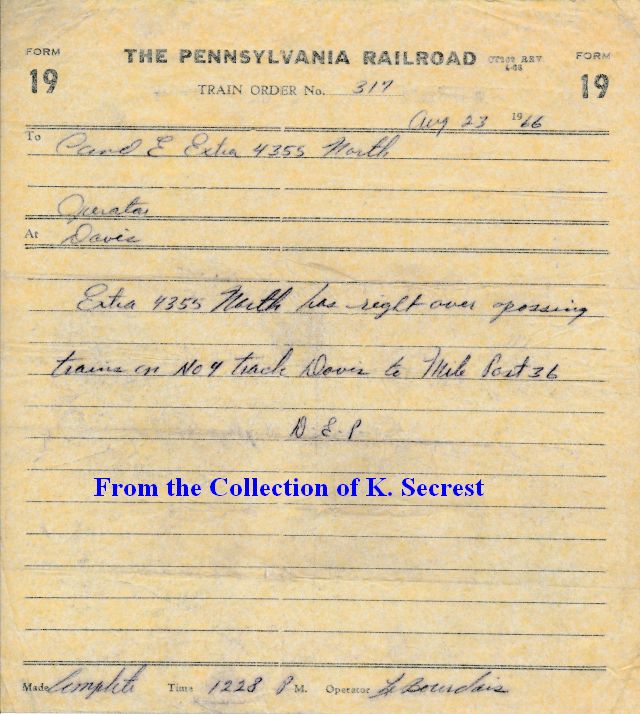 FORM 19
THE PENNSYLVANIA RAILROAD
FORM 19
TRAIN ORDER No. 317
Aug 23 1966
To C and E Extra 4355 North
Operator
At Davis
Extra 4355 North has right over opossing
trains on No 4 track Davis to Mile Post 36
D.E.P.
From the Collection of K. Secrest
Made Complete Time 1228 P M. Operator LeBourdais